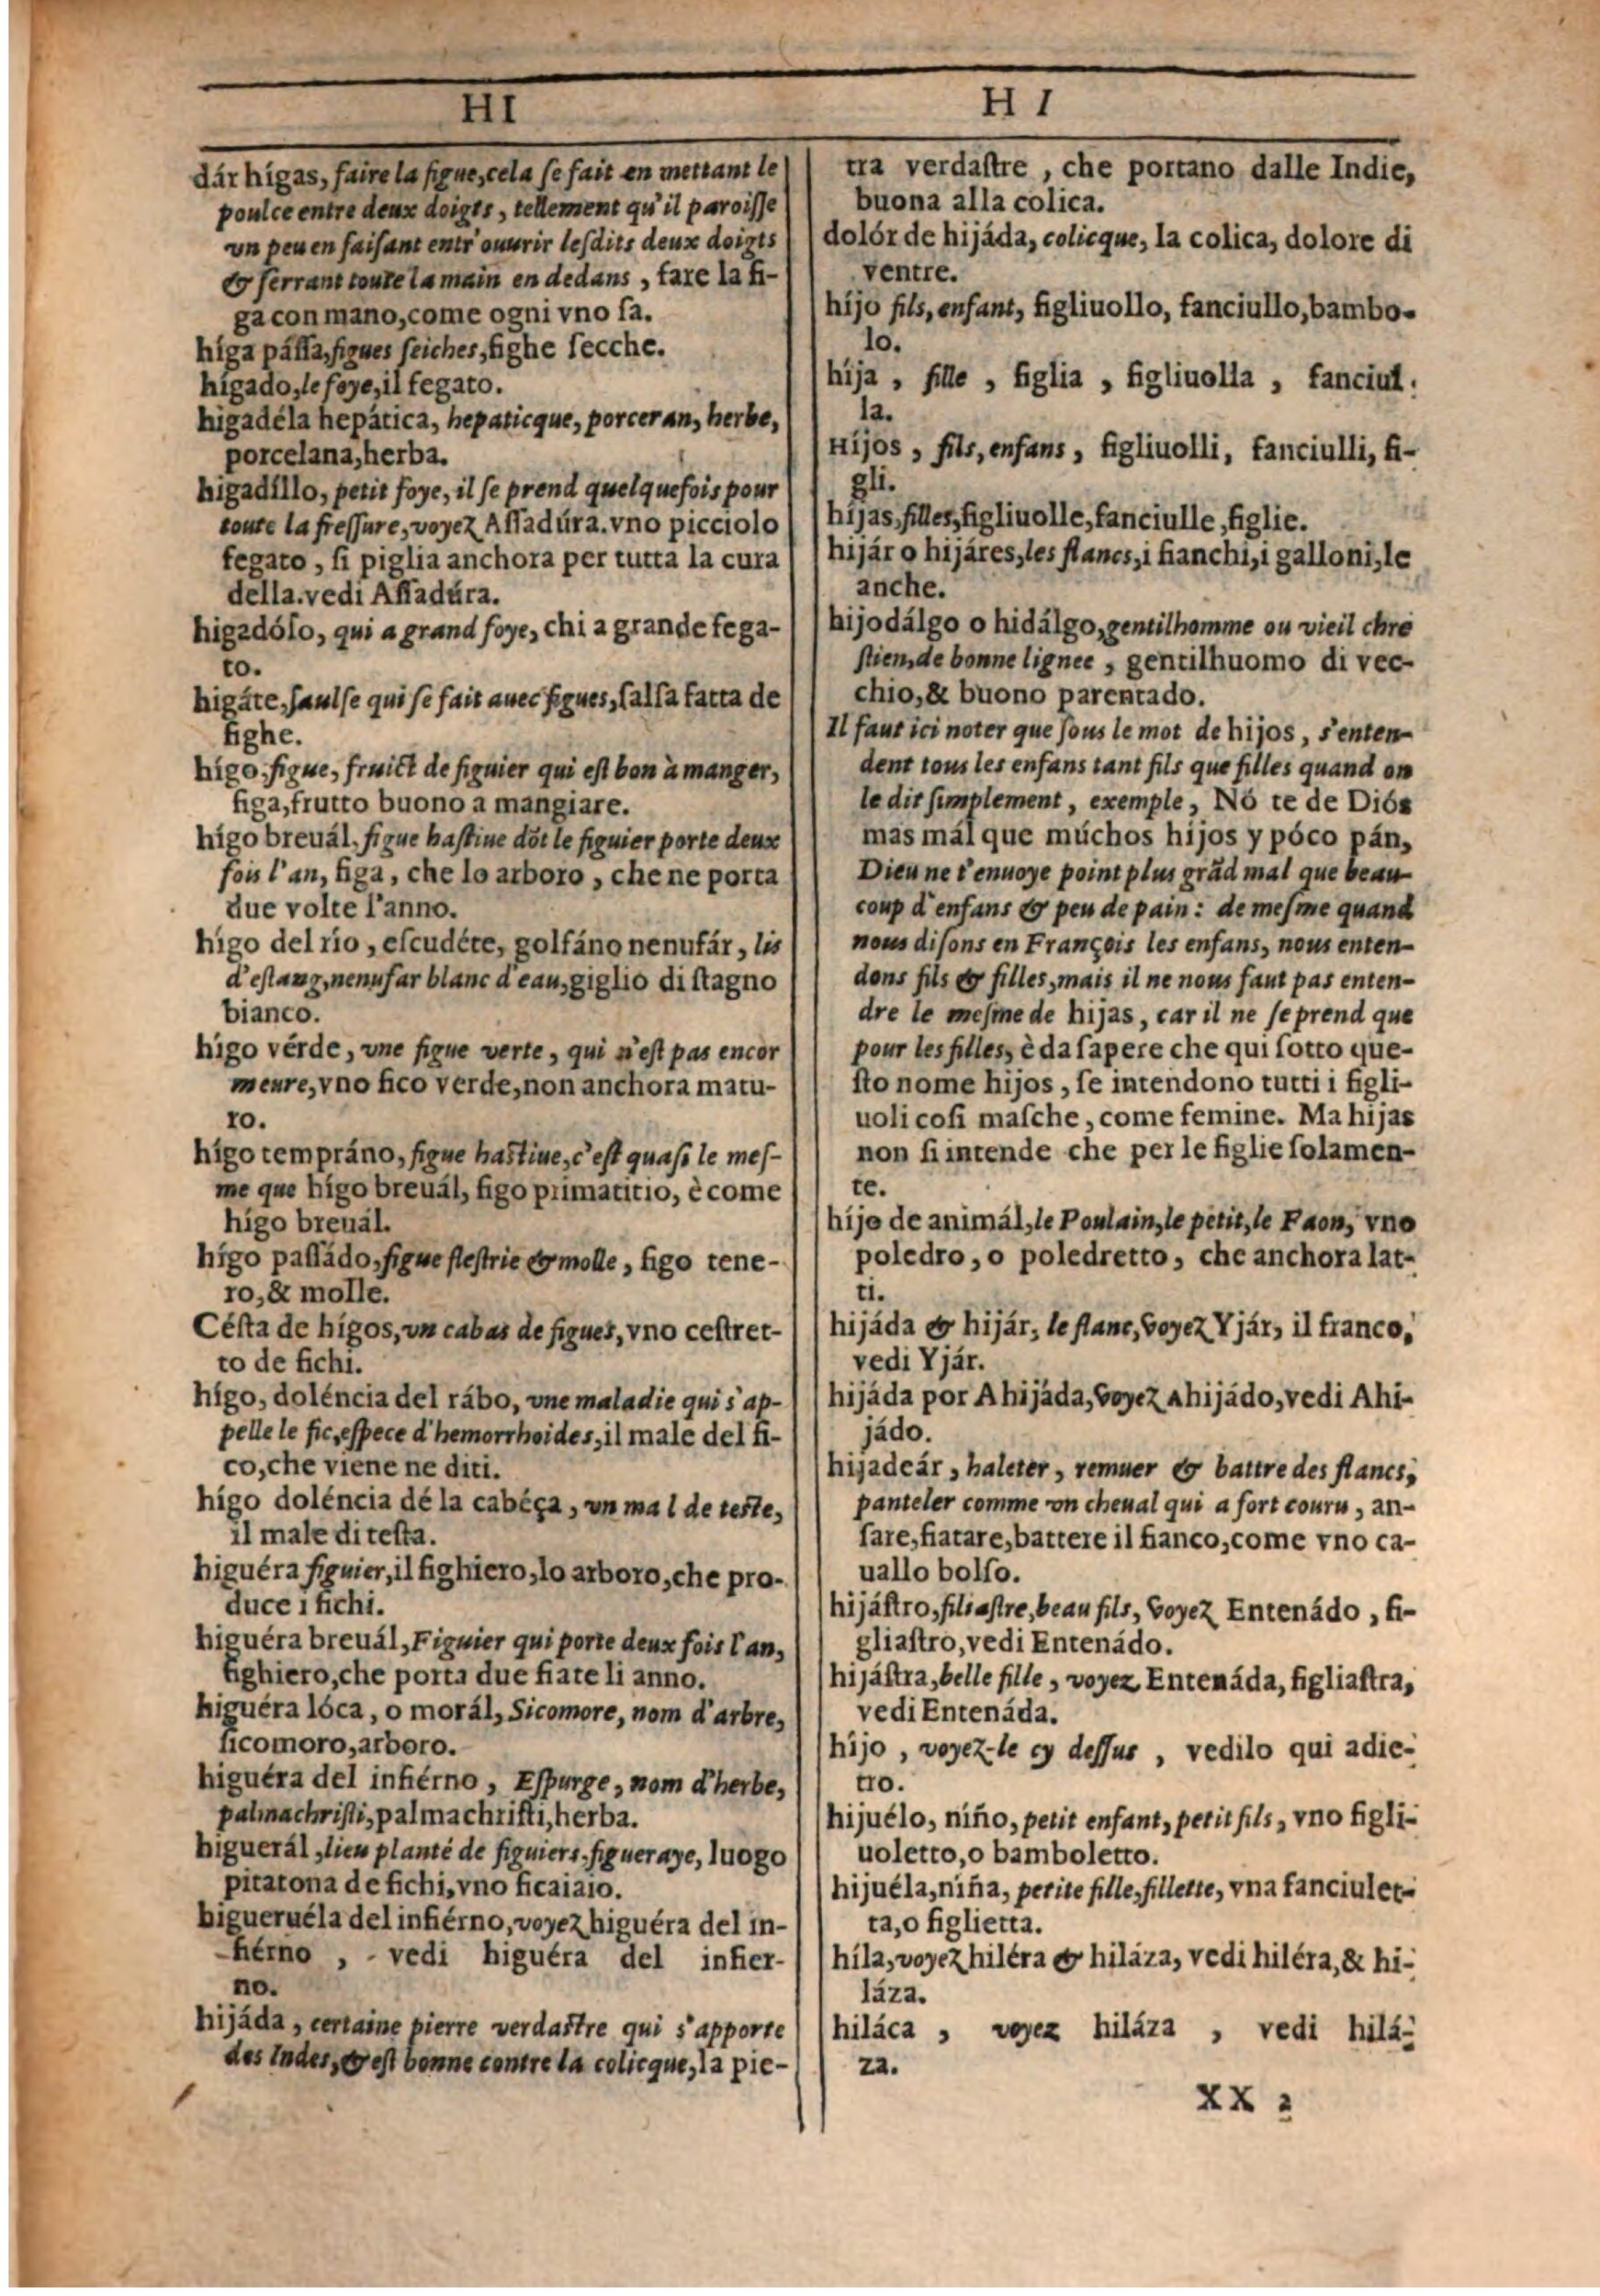 HI
dár hígas, faire la figue, cela ſe fait en mettant le
poulce entre deux doigts, tellement qu'il paroiſſe
vn peu en faiſant entr'ouurir leſdits deux doigts
& ſerrant toute la main en dedans, fare la fi-
ga con mano, come ogni vno ſa.
híga páſſa, figues ſeiches, fighe ſecche.
hígado, le foye, il fegato.
higadéla hepática, hepaticque, porceran, herbe,
porcelana, herba.
higadíllo, petit foye, il ſe prend quelquefois pour
toute la freſſure, voyez Aſſadúra. vno picciolo
fegato, ſi piglia anchora per tutta la cura
della. vedi Aſſadúra.
higadóſo, qui a grand foye, chi a grande fega-
to.
higáte, ſaulſe qui ſe fait auec figues, ſalſa fatta de
fighe.
hígo, figue, fruict de figuier qui eſt bon à manger,
figa, frutto buono a mangiare.
hígo breuál, figue haſtiue dõt le figuier porte deux
fois l'an, figa, che lo arboro, che ne porta
due volte l'anno.
hígo del río, eſcudéte, golfáno nenufár, lis
d'eſtang, nenufar blanc d'eau, giglio di ſtagno
bianco.
hígo vérde, vne figue verte, qui n'eſt pas encor
meure, vno fico verde, non anchora matu-
ro.
hígo tempráno, figue haſtiue, c'eſt quaſi le meſ-
me que hígo breuál, figo primaticio, è come
hígo breuál.
hígo paſſádo, figue fleſtrie & molle, figo tene-
ro, & molle.
Céſta de hígos, vn cabas de figues, vno ceſtret-
to de fichi.
hígo, doléncia del rábo, vne maladie qui s'ap-
pelle le fic, eſpece d'hemorrhoides, il male del fi-
co, che viene ne diti.
hígo doléncia dé la cabéça, vn mal de teſte,
il male di teſta.
higuéra figuier, il fighiero, lo arboro, che pro-
duce i fichi.
higuéra breuál, Figuier qui porte deux fois l'an,
fighiero, che porta due fiate li anno.
higuéra lóca, o morál, Sicomore, nom d'arbre,
ſicomoro, arboro.
higuéra del infiérno, Eſpurge, nom d'herbe,
palmachriſti, palmachriſti, herba.
higuerál, lieu planté de figuiers, figueraye, luogo
pitatona de fichi, vno ficaiaio.
higueruéla del infiérno, voyez higuéra del in-
fiérno, vedi higuéra del infier-
no.
hijáda, certaine pierre verdaſtre qui s'apporte
des Indes, & eſt bonne contre la colicque, la pie-
HI
tra verdaſtre, che portano dalle Indie,
buona alla colica.
dolór de hijáda, colicque, la colica, dolore di
ventre.
híjo fils, enfant, figliuollo, fanciullo, bambo-
lo.
híja, fille, figlia, figliuolla, fanciul
la.
Híjos, fils, enfans, figliuolli, fanciulli, fi-
gli.
híjas, filles, figliuolle, fanciulle, figlie.
hijár o hijáres, les flancs, i fianchi, i galloni, le
anche.
hijodálgo o hidálgo, gentilhomme ou vieil chre
ſtien, de bonne lignee, gentilhuomo di vec-
chio, & buono parentado.
Il faut ici noter que ſous le mot de hijos, s'enten-
dent tous les enfans tant fils que filles quand on
le dit ſimplement, exemple, Nó te de Diós
mas mál que múchos híjos y póco pán,
Dieu ne t'enuoye point plus grãd mal que beau-
coup d'enfans & peu de pain: de meſme quand
nous diſons en François les enfans, nous enten-
dons fils & filles, mais il ne nous faut pas enten-
dre le meſme de hijas, car il ne ſe prend que
pour les filles, è da ſapere che qui ſotto que-
ſto nome hijos, ſe intendono tutti i figli-
uoli coſi maſche, come femine. Ma hijas
non ſi intende che per le figlie ſolamen-
te.
híjo de animál, le Poulain, le petit, le Faon, vno
poledro, o poledretto, che anchora lat-
ti.
hijáda & hijár, le flanc, voyez Yjár, il franco,
vedi Yjár.
hijáda por Ahijáda, voyez Ahijádo, vedi Ahi-
jádo.
hijadeár, haleter, remuer & battre des flancs,
panteler comme vn cheual qui a fort couru, an-
ſare, fiatare, battere il fianco, come vno ca-
uallo bolſo.
hijáſtro, filiaſtre, beau fils, voyez Entenádo, fi-
gliaſtro, vedi Entenádo.
hijáſtra, belle fille, voyez Entenáda, figliaſtra,
vedi Entenáda.
híjo, voyez-le cy deſſus, vedilo qui adie-
tro.
hijuélo, níño, petit enfant, petit fils, vno figli-
uoletto, o bamboletto.
hijuéla, níña, petite fille, fillette, vna fanciulet-
ta, o figlietta.
híla, voyez hiléra & hiláza, vedi hiléra, & hi-
láza.
hiláca, voyez hiláza, vedi hilá-
za.
XX 2